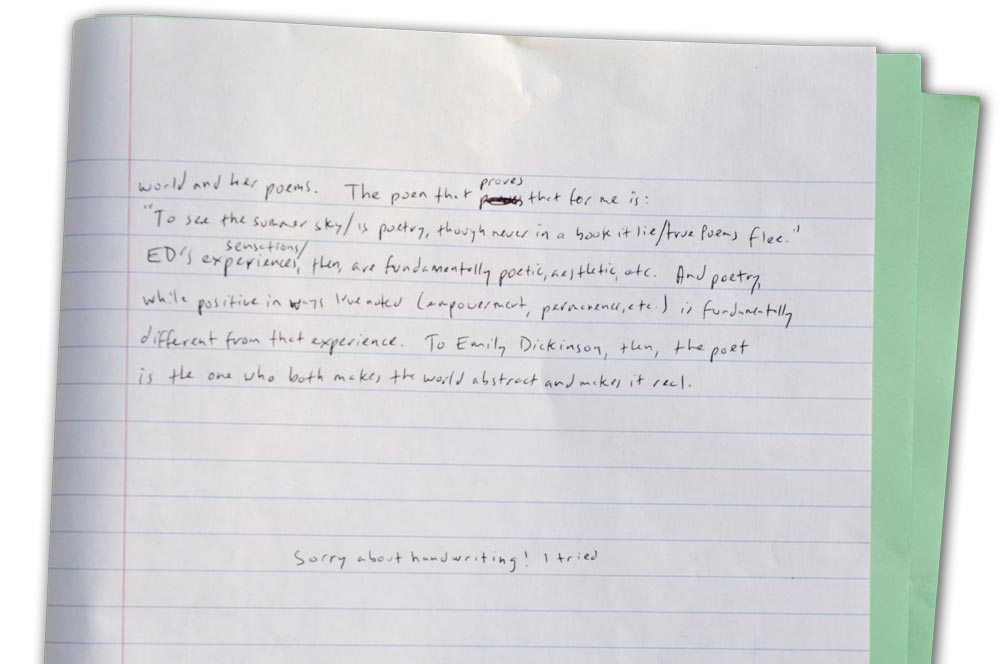 world and her poems. The poem that proves that for me is:
"To see the summer sky/is poetry, though never in a book it lie/true Poems flee."
ED's experiences, sensations/ then, are fundamentally poetic, aesthetic, etc. And poetry,
while positive in ways I've noted (empowerment, permanence, etc.) is fundamentally
different from that experience. To Emily Dickinson, then, the poet
is the one who both makes the world abstract and makes it real.
Sorry about handwriting! I tried